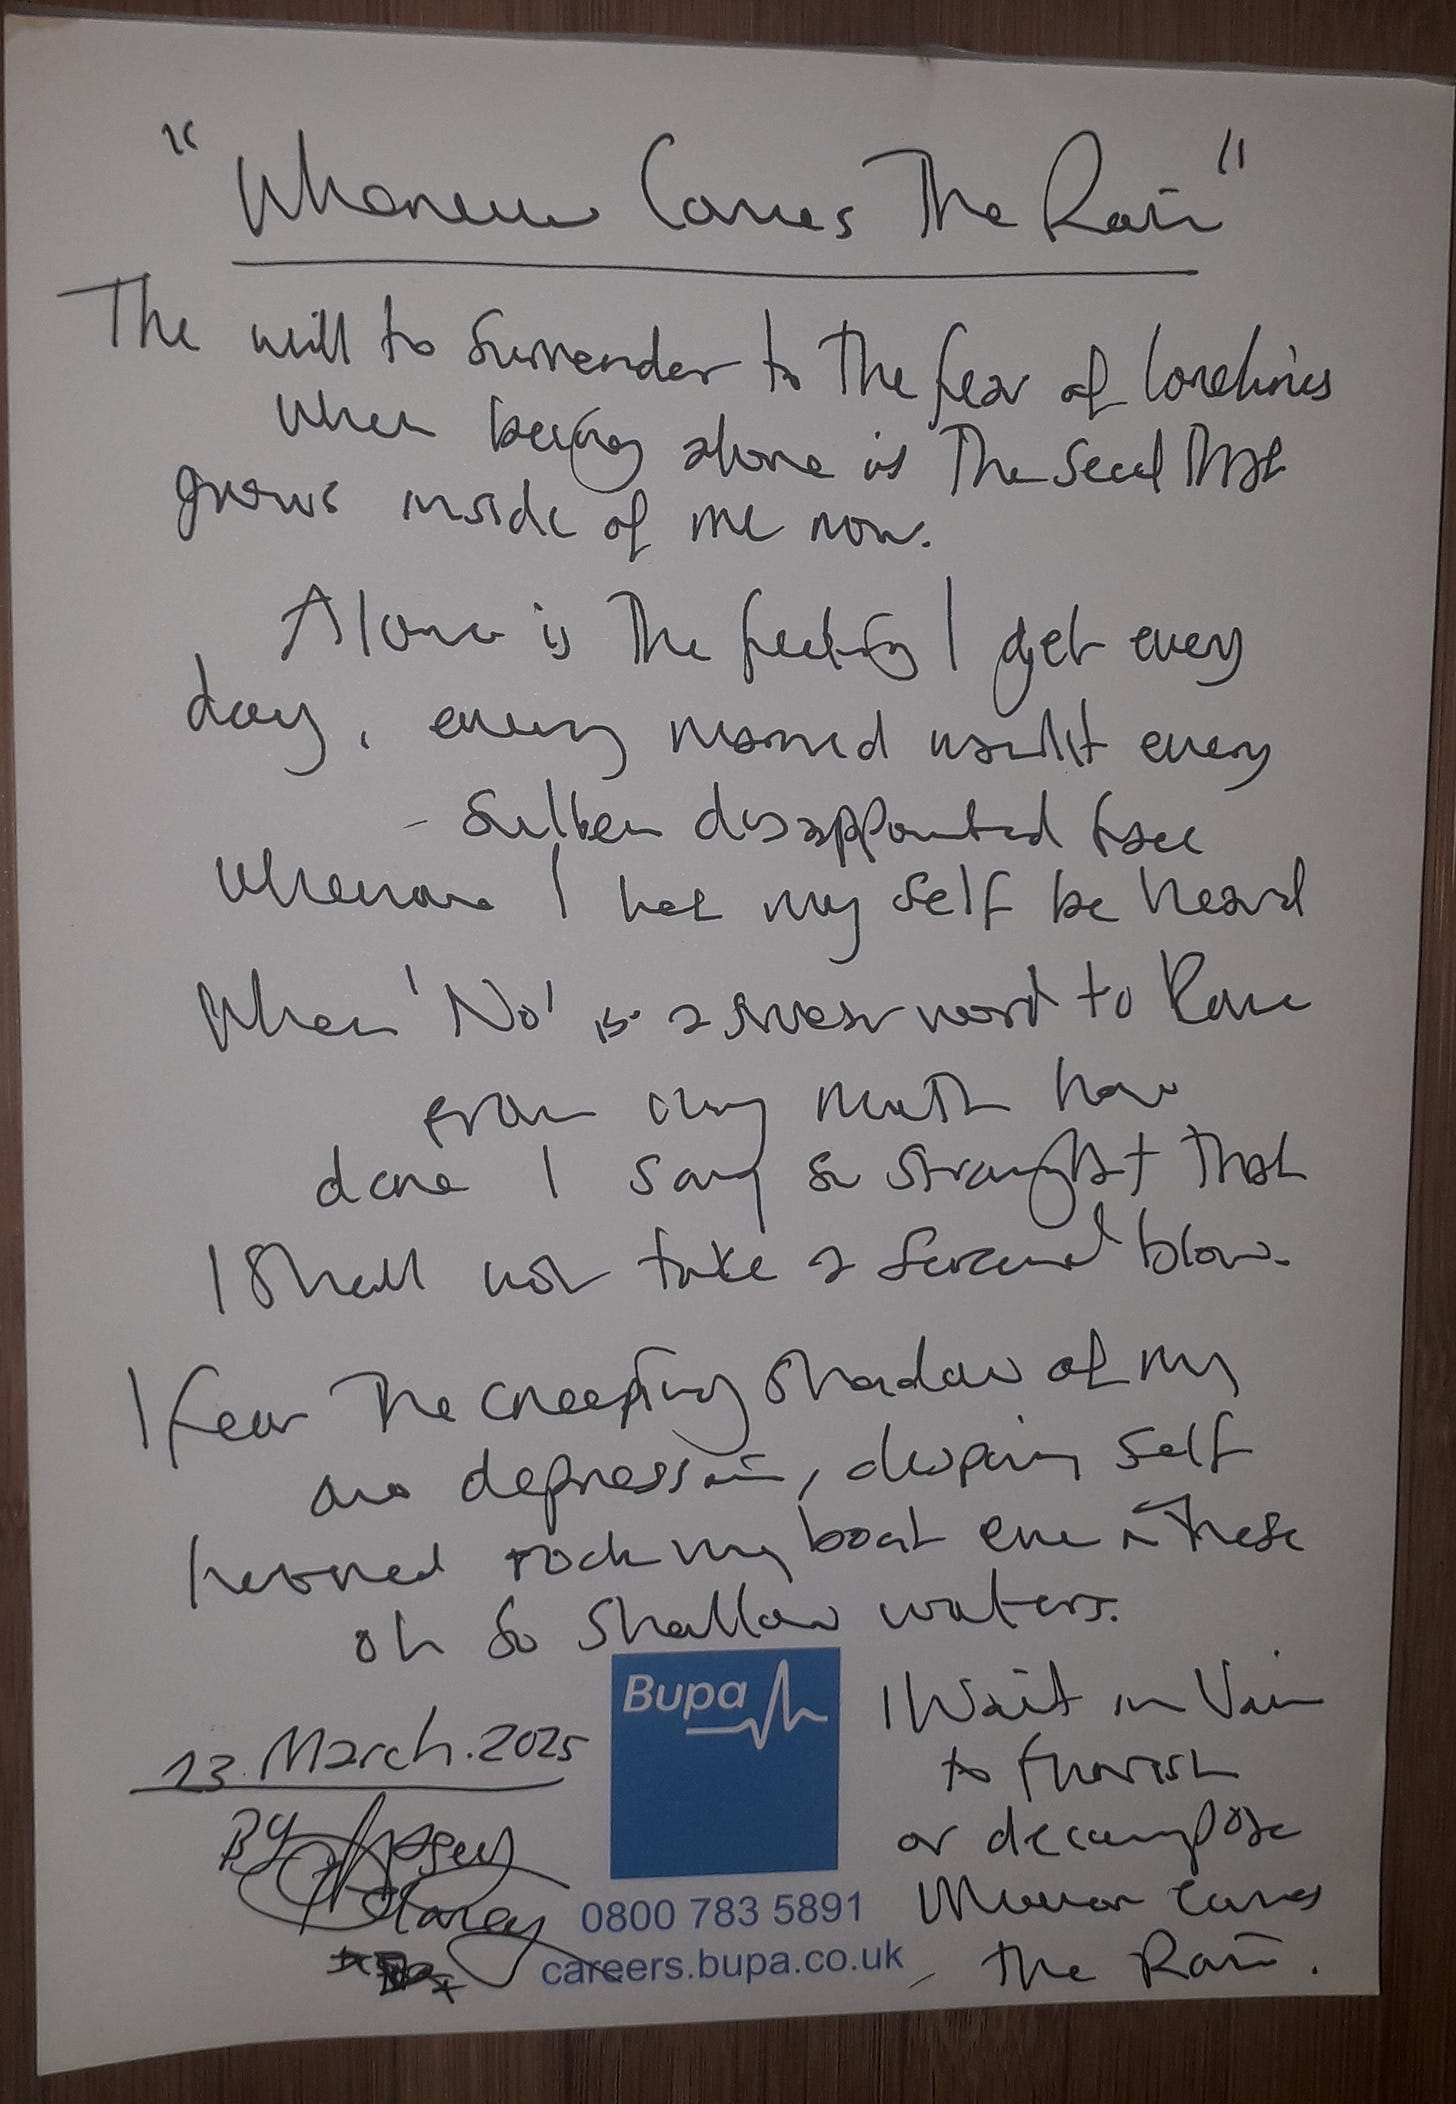 "Whenever Comes The Rain"
The will to surrender to The fear of loneliness
when being alone is The seed That
grows inside of me now.
Alone is The feeling I get every
day, every every
- sullen disappointed face
whenever I let my self be heard
When 'No' is a word to
from my mouth how
dare I say so straight that
I shall not take a second blow.
I fear The creeping shadow of my
own depression, self
rock my boat even in These
oh so shallow waters.
I Wait in Vain
to flourish
or decompose
Whenever comes
- The Rain.
13. March. 2025
BY
Bupa
0800 783 5891
careers.bupa.co.uk